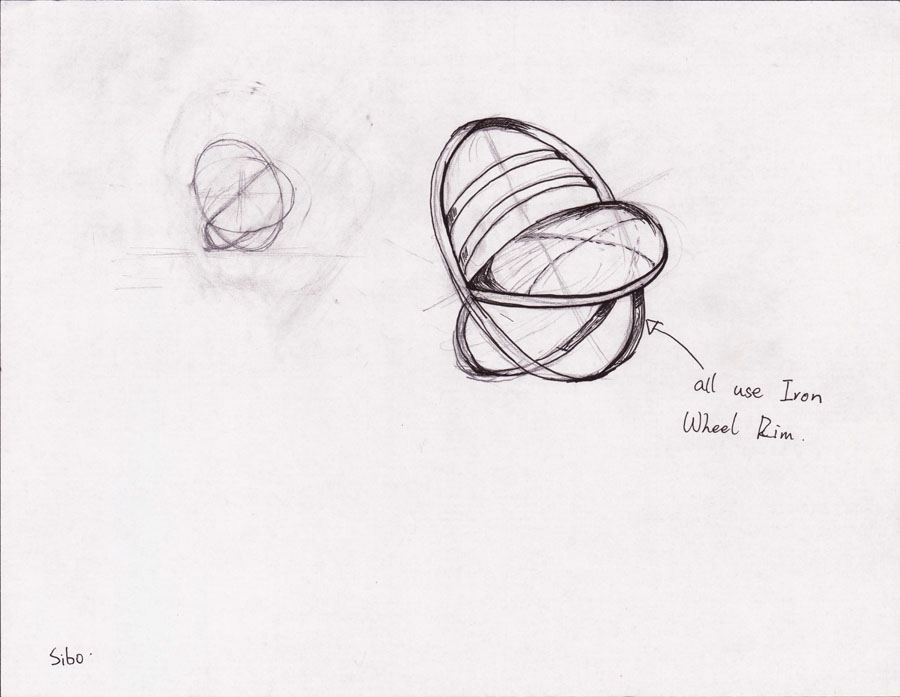 all use Iron
Wheel Rim.
Sibo.